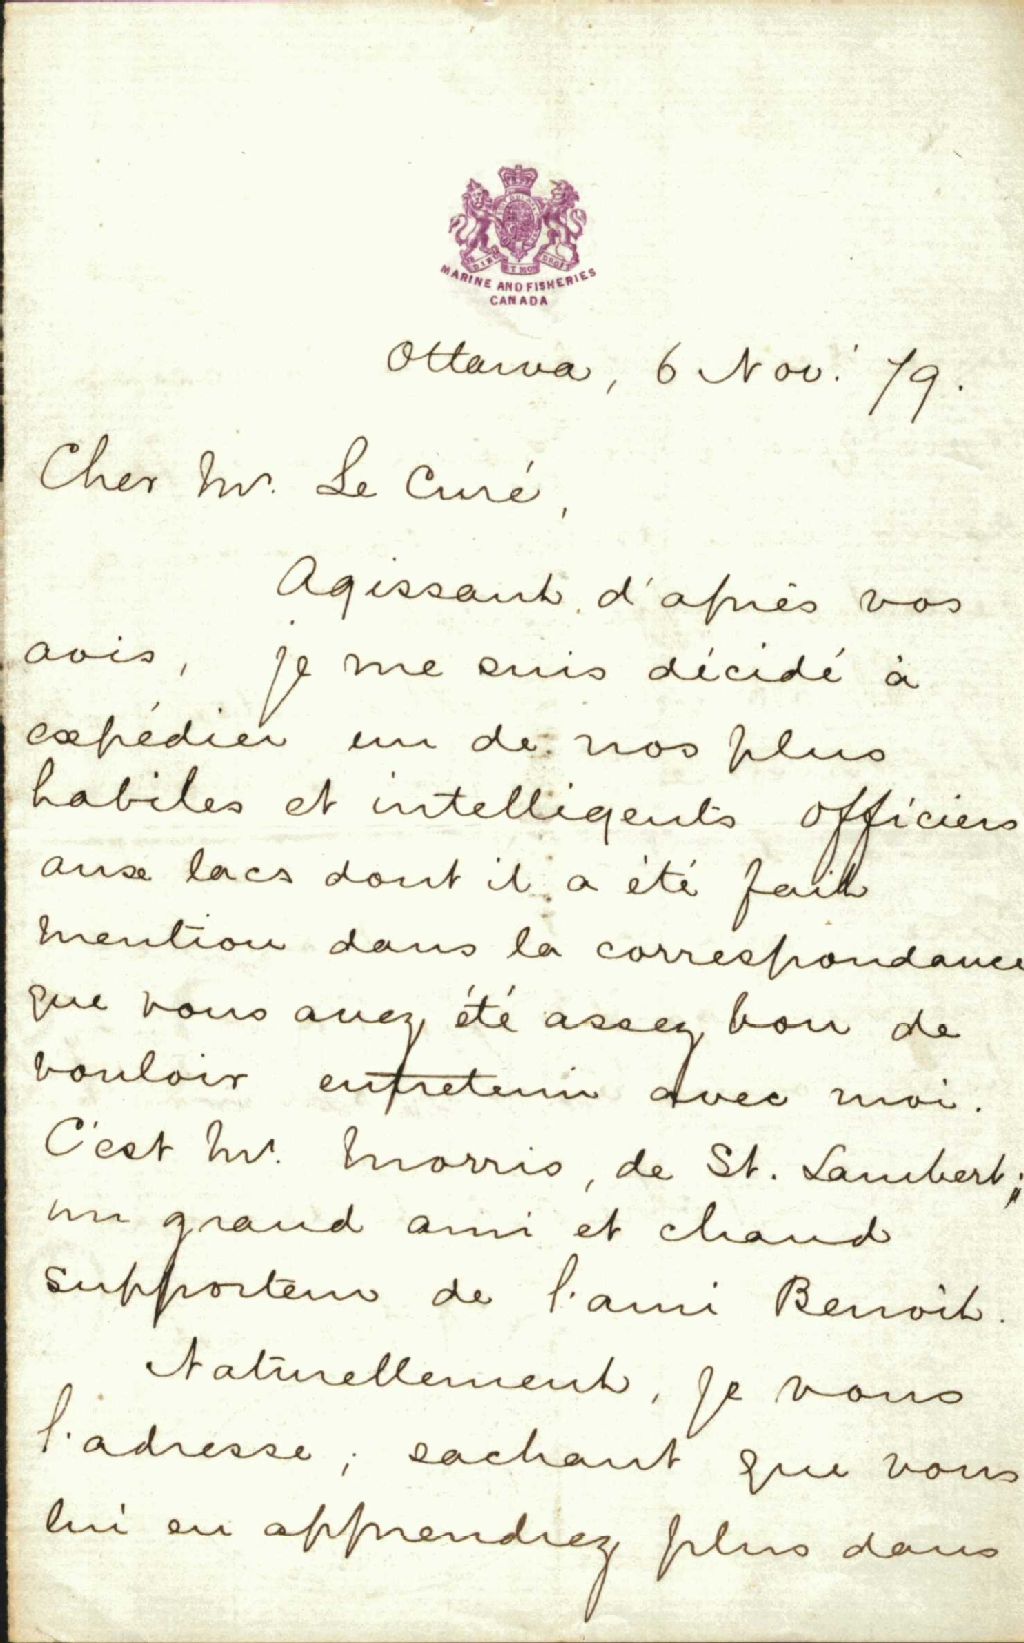 MARINE AND FISHERIES
CANADA
Ottawa, 6 Nov. '79.
Cher Mr. Le Curé,
Agissant d'après vos
avis, je me suis décidé à
expédier un de nos plus
habiles et intelligents officiers
aux lacs dont il a été fait
mention dans la correspondance
que vous avez été assez bon de
vouloir entretenir avec moi.
C'est Mr. Morris, de St. Lambert;
un grand ami et chaud
supporteur de l'ami Benoit.
Naturellement, je vous
l'adresse; sachant que vous
lui en apprendrez plus dans